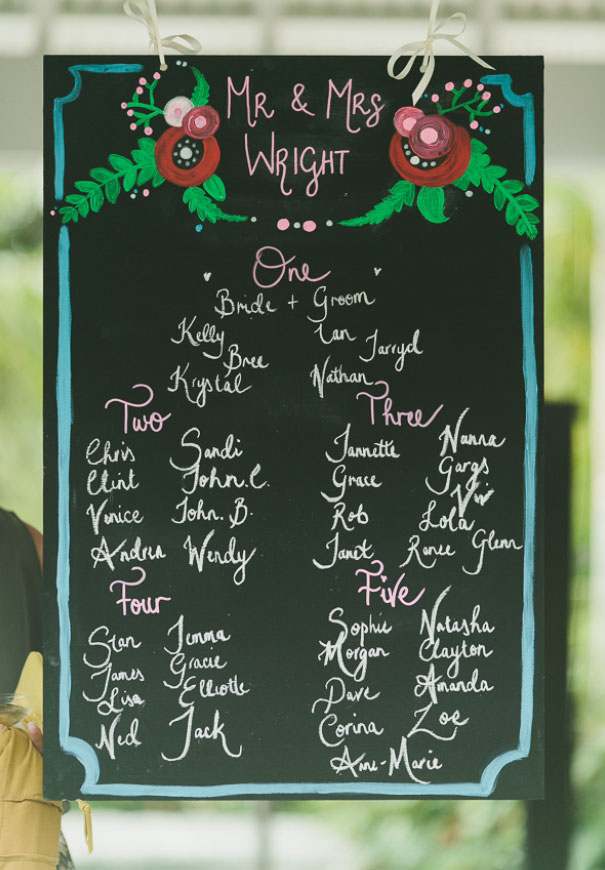 Mr & Mrs
Wright
One
Bride + Groom
Kelly Ian
Bree Jarryd
Krystal Nathan
Two
Chris Sandi
Clint John. C.
Venice John. B.
Andrea Wendy
Three
Jannette Nanna
Grace Gargs
Viv
Rob Lola
Janet Renee Glenn
Four
Stan Jemma
James Gracie
Lisa Elliotte
Ned Jack
Five
Sophie Natasha
Morgan Clayton
Dave Amanda
Corina Zoe
Ann-Marie